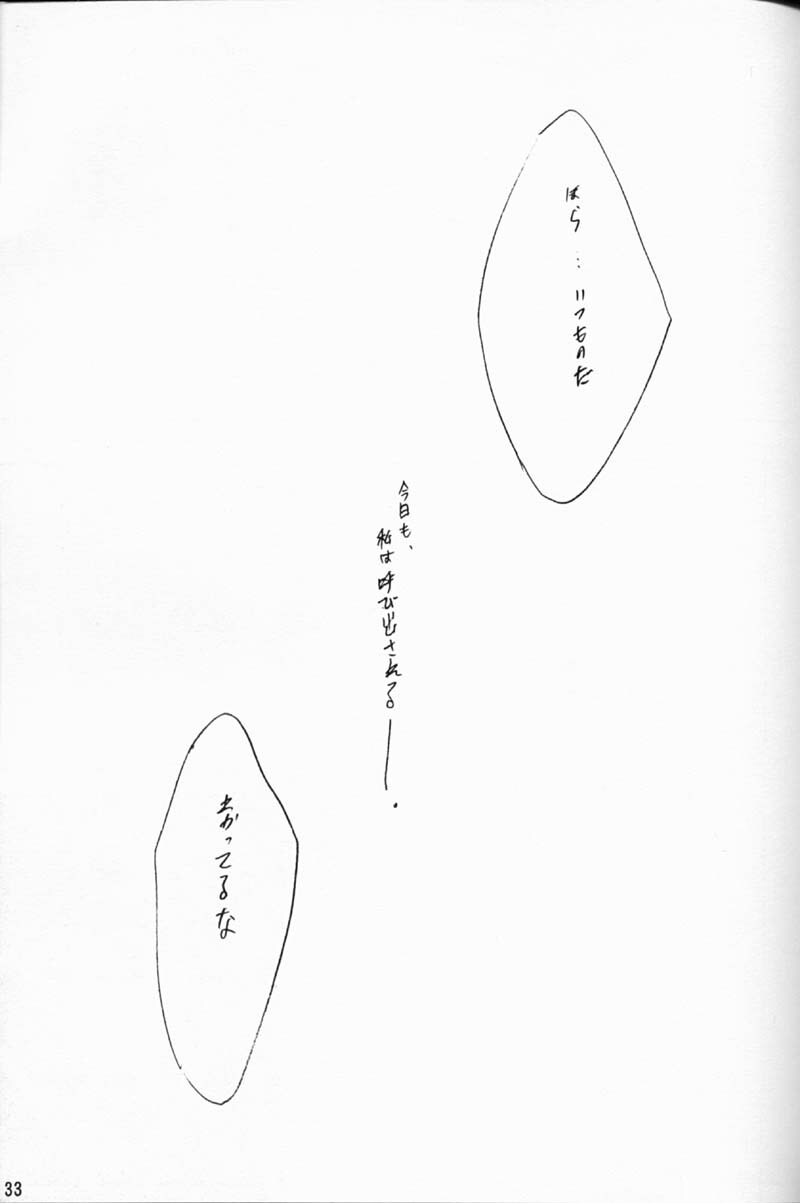 ほら…いつものだ
今日も、
私は呼び出される――.
がってるな
33